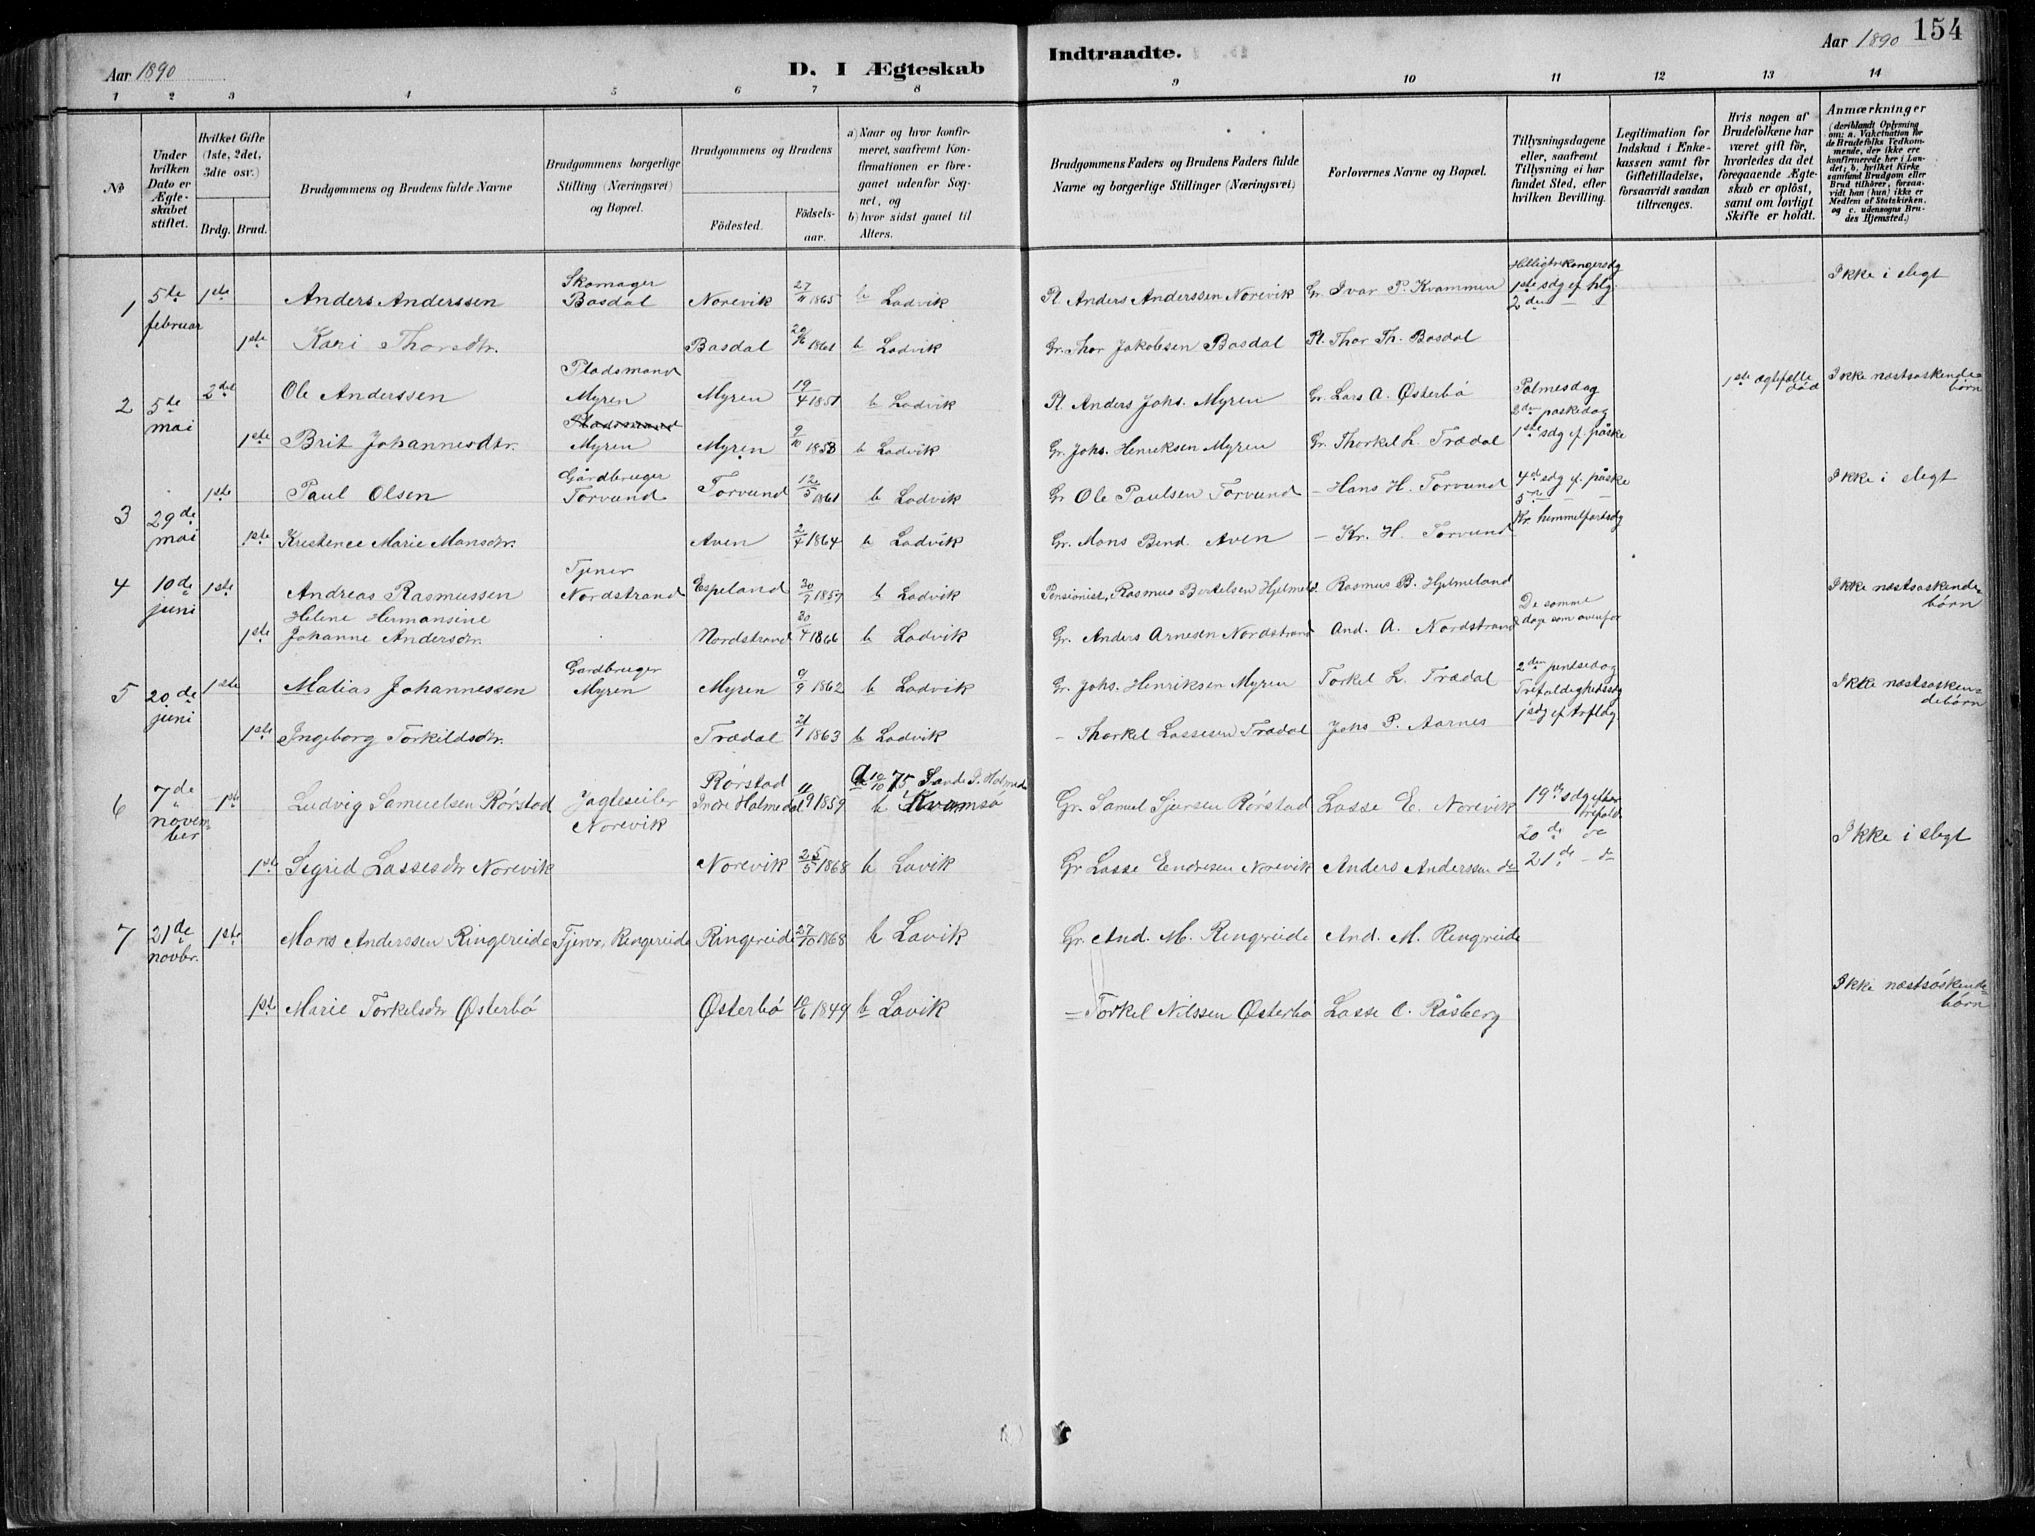 154
Aar 1890
D. I Ægteskab
Indtraadte.
Aar 1890
1 2 3 4 5 6 7 8 9 10 11 12 13 14
No
Under hvilken Dato er Ægteskabet stiftet.
Hvilket Gifte (1ste, 2det, 3die osv.)
Brdg. Brud.
Brudgommens og Brudens fulde Navne
Brudgommens borgerlige Stilling (Næringsvei) og Bopæl.
Brudgommens og Brudens
Födested.
Födselsaar.
a) Naar og hvor konfirmeret, saafremt Konfirmationen er foreganet udenfor Sognet, og
b) hvor sidst gaaet til Alters.
Brudgommens Faders og Brudens Faders fulde Navne og borgerlige Stillinger (Næringsvei)
Forlovernes Navne og Bopæl.
Tillysningsdagene eller, saafremt Tillysning ei har fundet Sted, efter hvilken Bevilling.
Legitimation for Indskud i Enkekassen samt for Giftetilladelse, forsaavidt saadan tiltrænges.
Hvis nogen af Brudefolkene har været gift för, hvorledes da det foregaaende Ægteskab er oplöst, samt om lovligt Skifte er holdt.
Anmærkninger (deriblandt Oplysning om: a. Vakcination for de Brudefolks Vedkommende, der ikke ere konfirmerede her i Landet; b. hvilket Kirkesamfund Brudgom eller Brud tilhörer, forsaavidt han (hun) ikke er Medlem af Statskirken. og c. udensogns Brudes Hjemsted.)
1 5te februar 1ste Anders Anderssen Skomager Basdal Norevik 27/11 1865 b Ladvik Pl. Anders Anderssen Norevik Gr. Ivar P. Kvammen Helligtrekongersdg 1ste sdg ef. hlg. 2den — — Ikke i slegt
1ste Kari Thorsdtr. Basdal 20/6 1861 b Ladvik Gr. Thor Jakobsen Basdal Pl. Thor Th. Basdal
2 5te mai 2det Ole Anderssen Pladsmand Myren Myren 19/4 1851 b Ladvik Pl. Anders Johs. Myren Gr. Lars A. Østerbö Palmesdag 2den paskedag 1ste ægtefælle död Ikke næstsøskendebörn
1ste Brit Johannesdtr. Pladsmand Myren Myren 9/10 1853 b Ladvik Gr. Johs. Henriksen Myren Gr. Thorkel L. Trædal 1ste sdg ef. påske
3 29de mai 1ste Paul Olsen Gårdbruger Torvund Torvund 12/5 1861 b Ladvik Gr. Ole Paulsen Torvund — Hans H. Torvund 4de sdg ef. påske 5te — — Ikke i slegt
1ste Kristence Marie Monsdtr. Aven 2/4 1864 b Ladvik Gr. Mons Bend. Aven — Kr. H. Torvund Kr. himmelfartsdg
4 10de juni 1ste Andreas Rasmussen Tjener Nordstrand Espeland 30/7 1857 b Ladvik Pensionist, Rasmus Bertelsen Hjelmeld. Rasmus B. Hjelmeland De samme dage som ovenfor Ikke næstsøskendebörn
1ste Helene Hermansine Johanne Andersdtr. Nordstrand 20/4 1866 b Ladvik Gr. Anders Arnesen Nordstrand And. A. Nordstrand
5 20de juni 1ste Matias Johannessen Gardbruger Myren Myren 9/9 1862 b Ladvik Gr. Johs. Henriksen Myren Torkel L. Trædal 2den pindsedag Trefoldighedssdg Ikke næstsøskendebörn
1ste Ingeborg Torkildsdtr. Trædal 21/1 1863 b Ladvik — Thorkel Lassesen Trædal Johs P. Aarnes 1 sdg ef trfldg.
6 7de november 1ste Ludvig Samuelsen Rörstad Jagteseiler Norevik Rörstad Indre Holmedal 11/9 1859 a 10/10 75 Sande I. Holmed b Kvamsö Gr. Samuel Sjursen Rörstad Lasse E. Norevik 19de sdg efter trefold. 20de do Ikke i slegt
1ste Sigrid Lassesdtr Norevik Norevik 25/5 1868 b Lavik Gr Lasse Endresen Norevik Anders Anderssen do 21de - do
7 21de novbr. 1ste Mons Anderssen Ringereide Tjener, Ringereide Ringereide 27/10 1868 b Lavik Gr. And. M. Ringreide And. M. Ringreide
1ste Marie Torkelsdtr Østerbö Østerbö 10/6 1849 b Lavik — Torkel Nilssen Østerbö Lasse O. Råsberg Ikke næstsöskendebörn